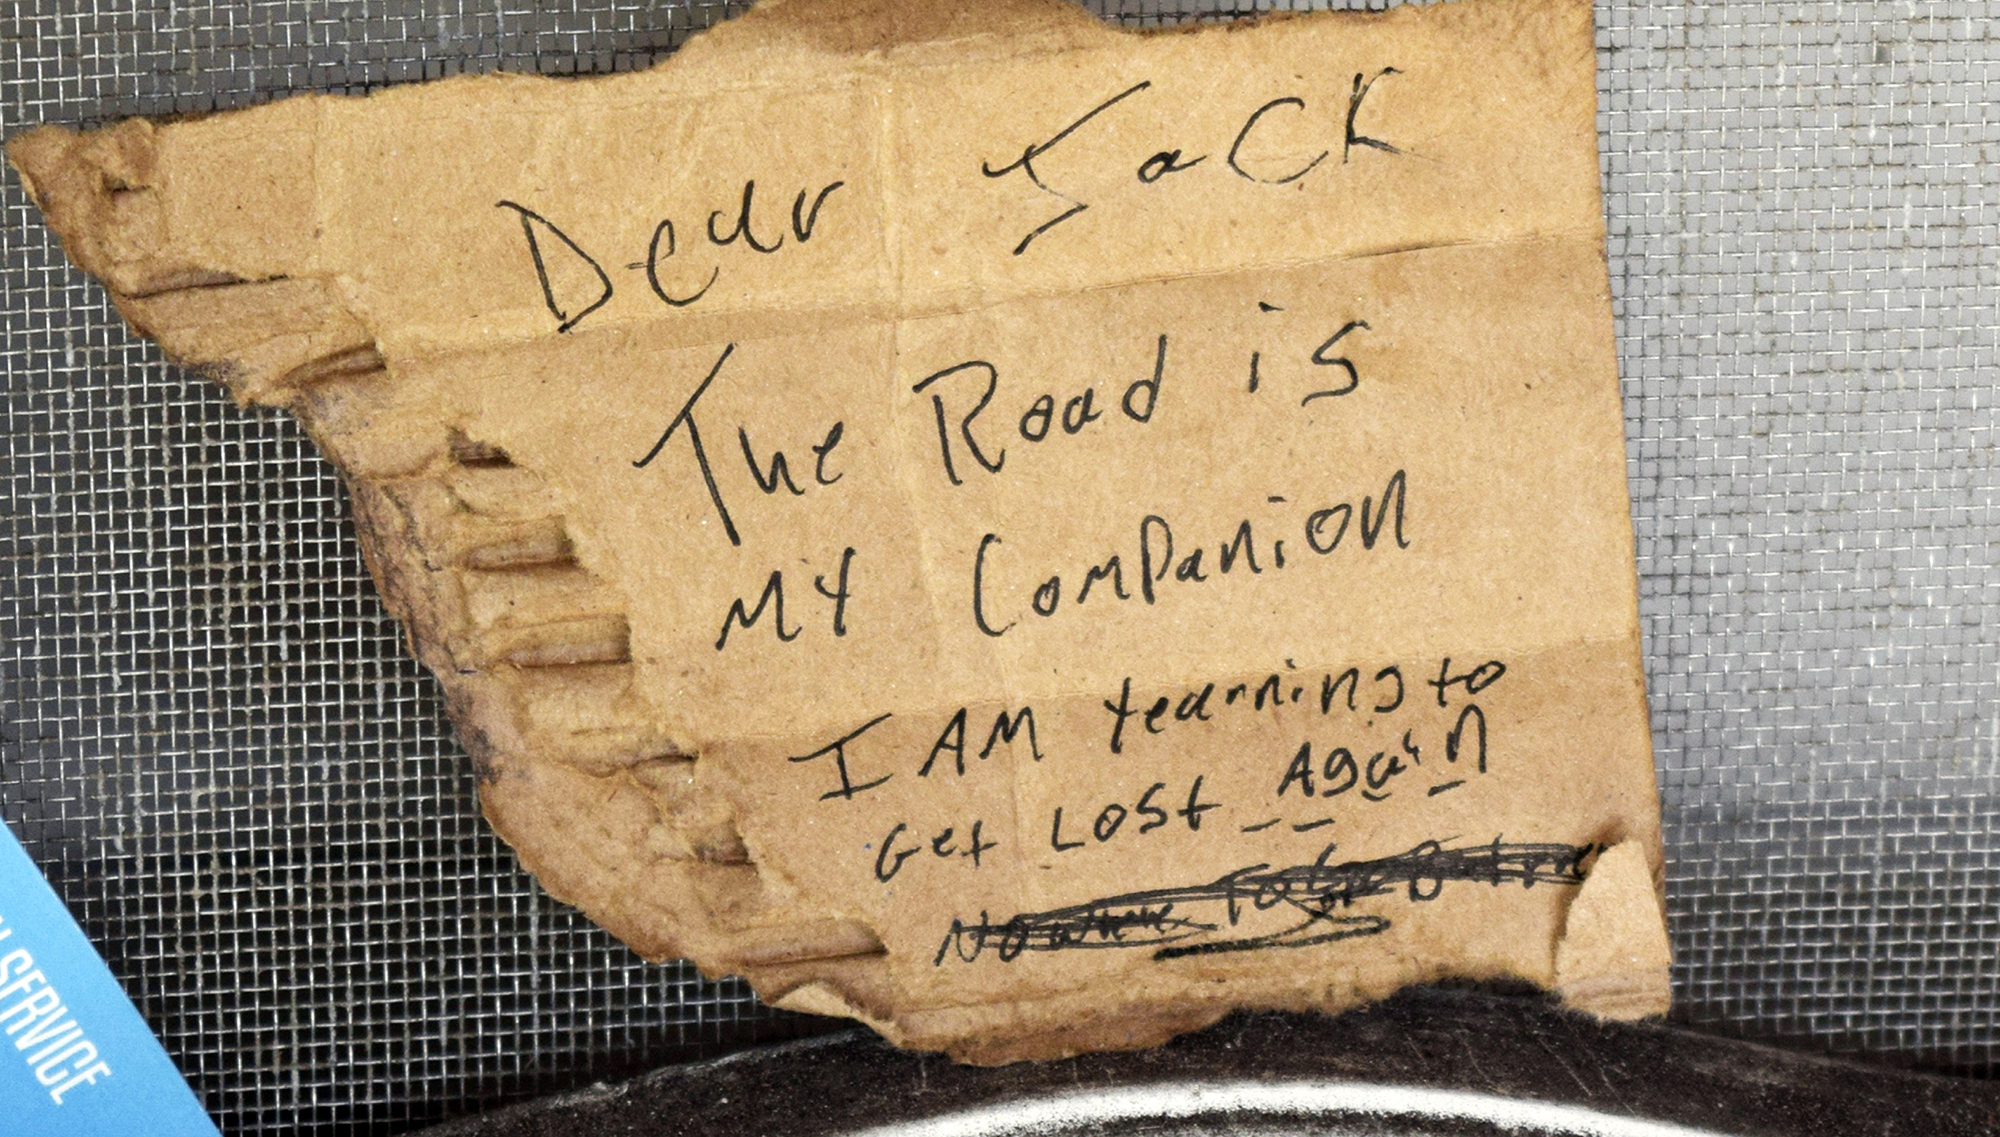 Dear Jack
The Road is
MY Companion
I AM Yearning to
Get Lost Again
Nowhere
SERVICE